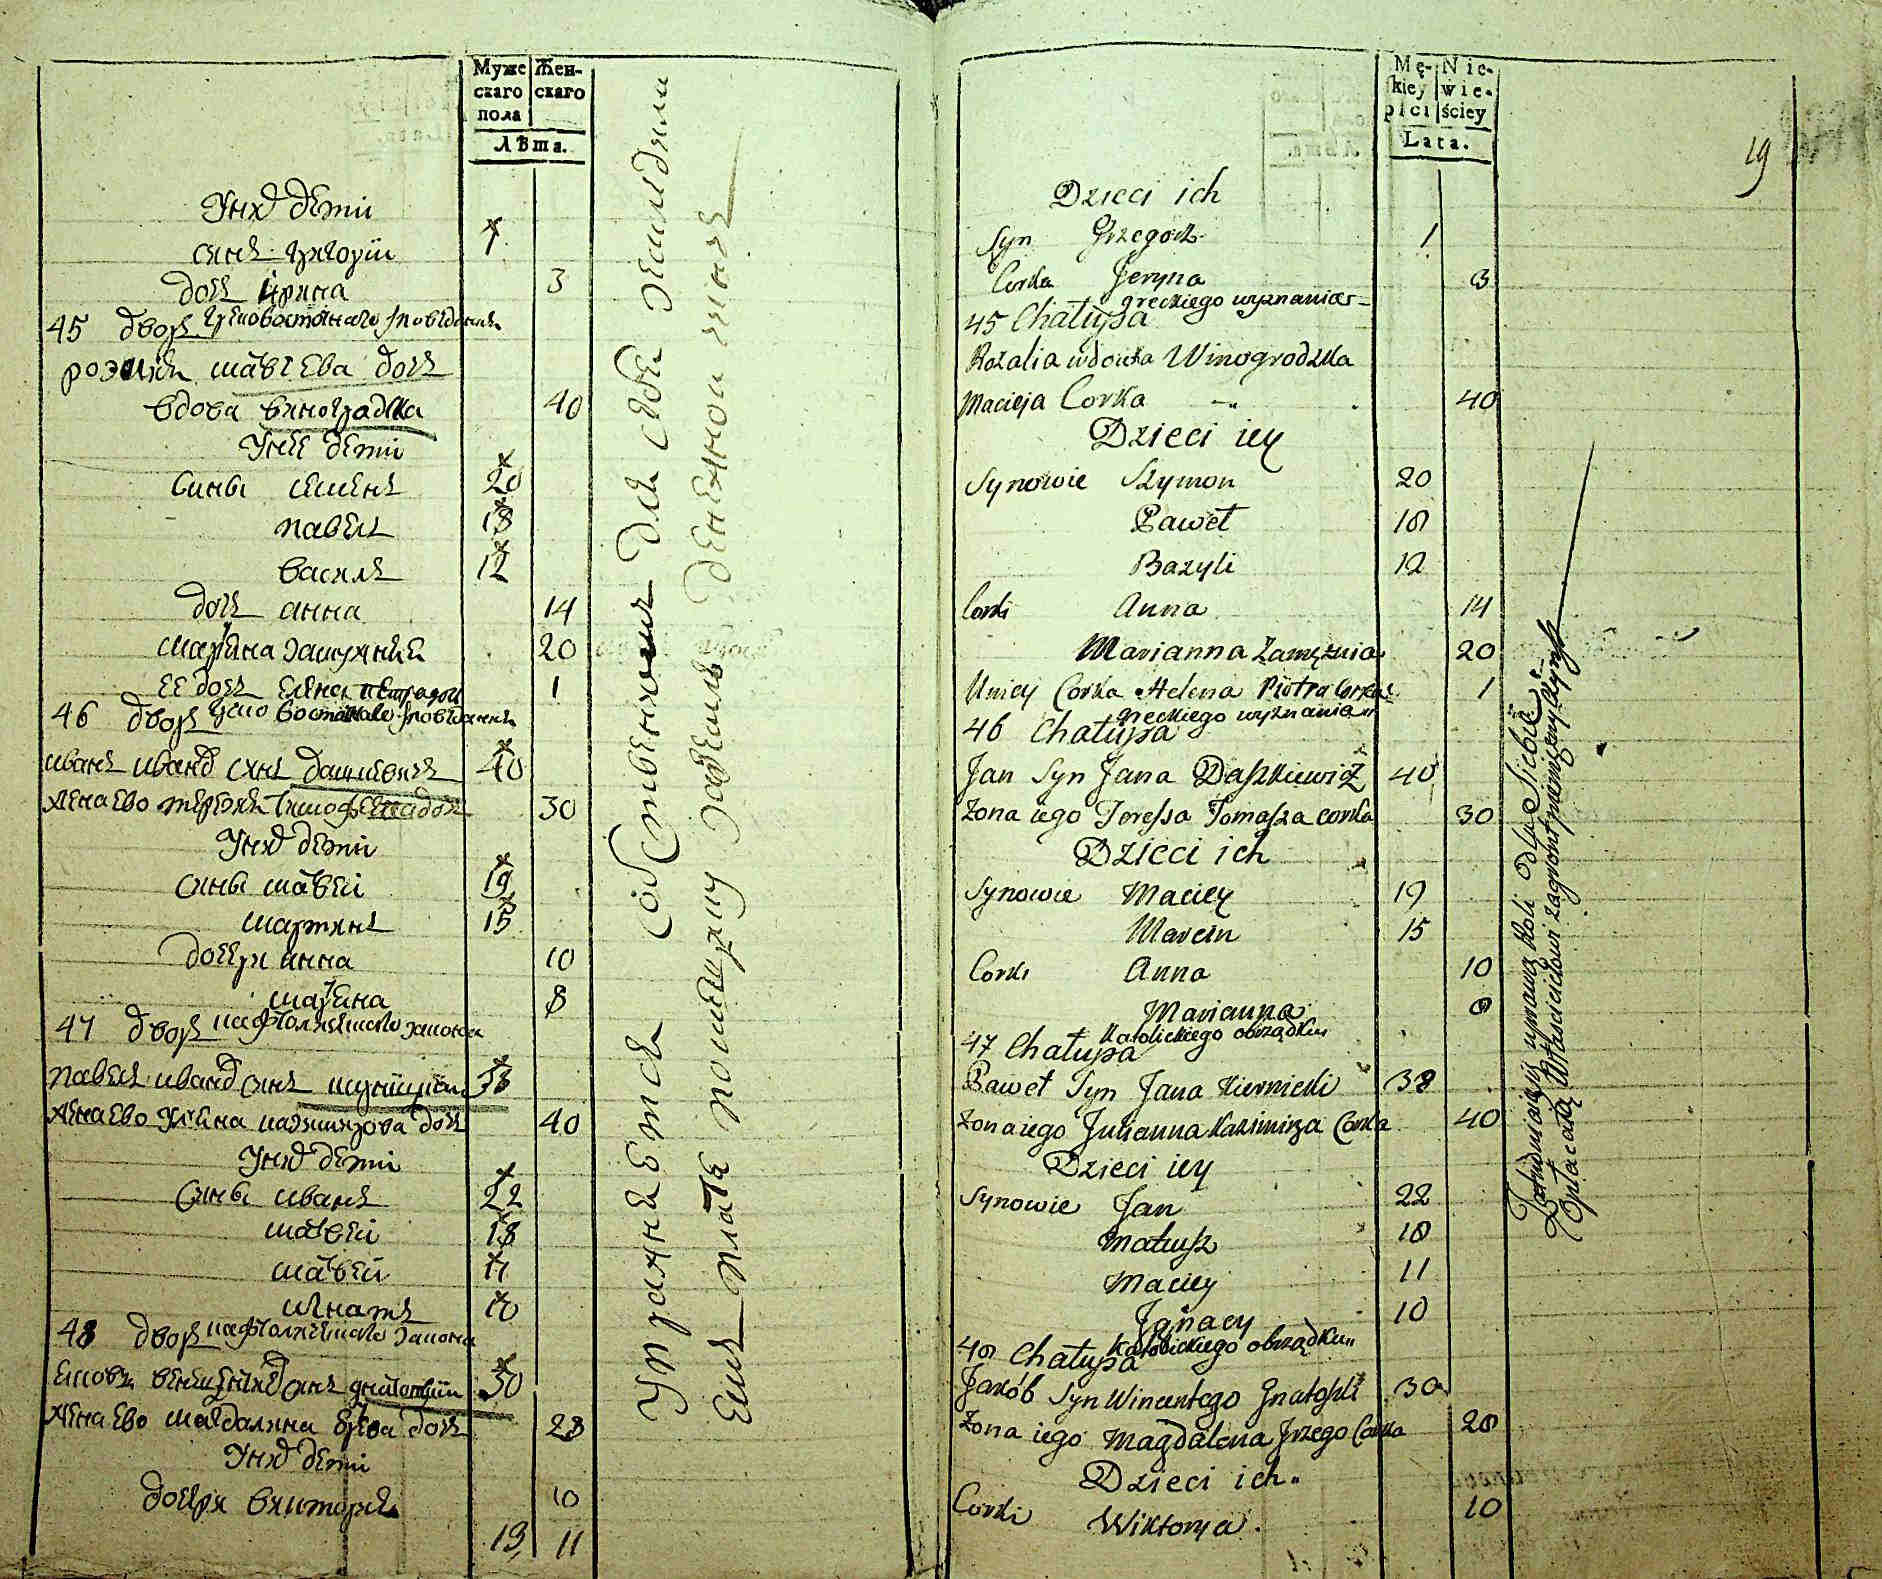 Муже
скаго
пола
Жен-
скаго
Лѣта.
У нихъ дети
синъ григорїи 1
дочь ирина 3
45 дворъ грековосточнаго исповедания
розалия матвеева дочь
вдова виноградзка 40
У нее дети
Сины семенъ 20
павелъ 18
василь 12
дочь анна 14
марїана замужняя 20
ее дочь елена петра дочь 1
46 дворъ греко восточнаго исповедания
иванъ ивановъ синъ дашкевичъ 40
жена ево терезия тимофеева дочь 30
У нихъ дети
сины матвей 19
мартинъ 15
дочери анна 10
марїана 8
47 дворъ католическаго закона
павелъ ивановъ синъ 38
жена ево улїана казимирова дочь 40
У нихъ дети
Сины иванъ 22
матвеи 18
матвеи 11
игнатъ 10
48 дворъ католическаго закона
яковъ синъ гнатовскїи 30
жена ево магдалина дочь 28
У нихъ дети
дочеря виктория 10
19 11
Упражняется собственныя для себя
ея плата помещику
Mę-
skiey
płci
Nie-
wie-
ściey
Lata.
19
Dzieci ich
Syn Grzegorz 1
Corka Jeryna 3
45 Chałupa greckiego wyznania
Rozalia wdowka Winogrodzka
Macieja Corka 40
Dzieci iey
Synowie Szymon 20
Paweł 18
Bazyli 12
Corki Anna 14
Marianna Zamężnia 20
U niey Corka Helena Piotra Corka 1
46 Chałupa greckiego wyznania
Jan Syn Jana Daszkiewicz 40
Zona iego Teressa Tomasza corka 30
Dzieci ich
Synowie Maciey 19
Marcin 15
Corki Anna 10
Marianna 8
47 Chałupa Katolickiego obrządku
Paweł Syn Jana 38
Zona iego Julianna Kazimirza Corka 40
Dzieci iey
Synowie Jan 22
Mateusz 18
Maciey 11
Jgnacy 10
48 Chałupa Katolickiego obrządku
Jakób Syn Wincentego Gnatoski 30
Zona iego Magdalena Jrzego Corka 28
Dzieci ich
Corki Wiktorya 10
uprawą Roli dla Siebie
Opłacaią Właścicielowi